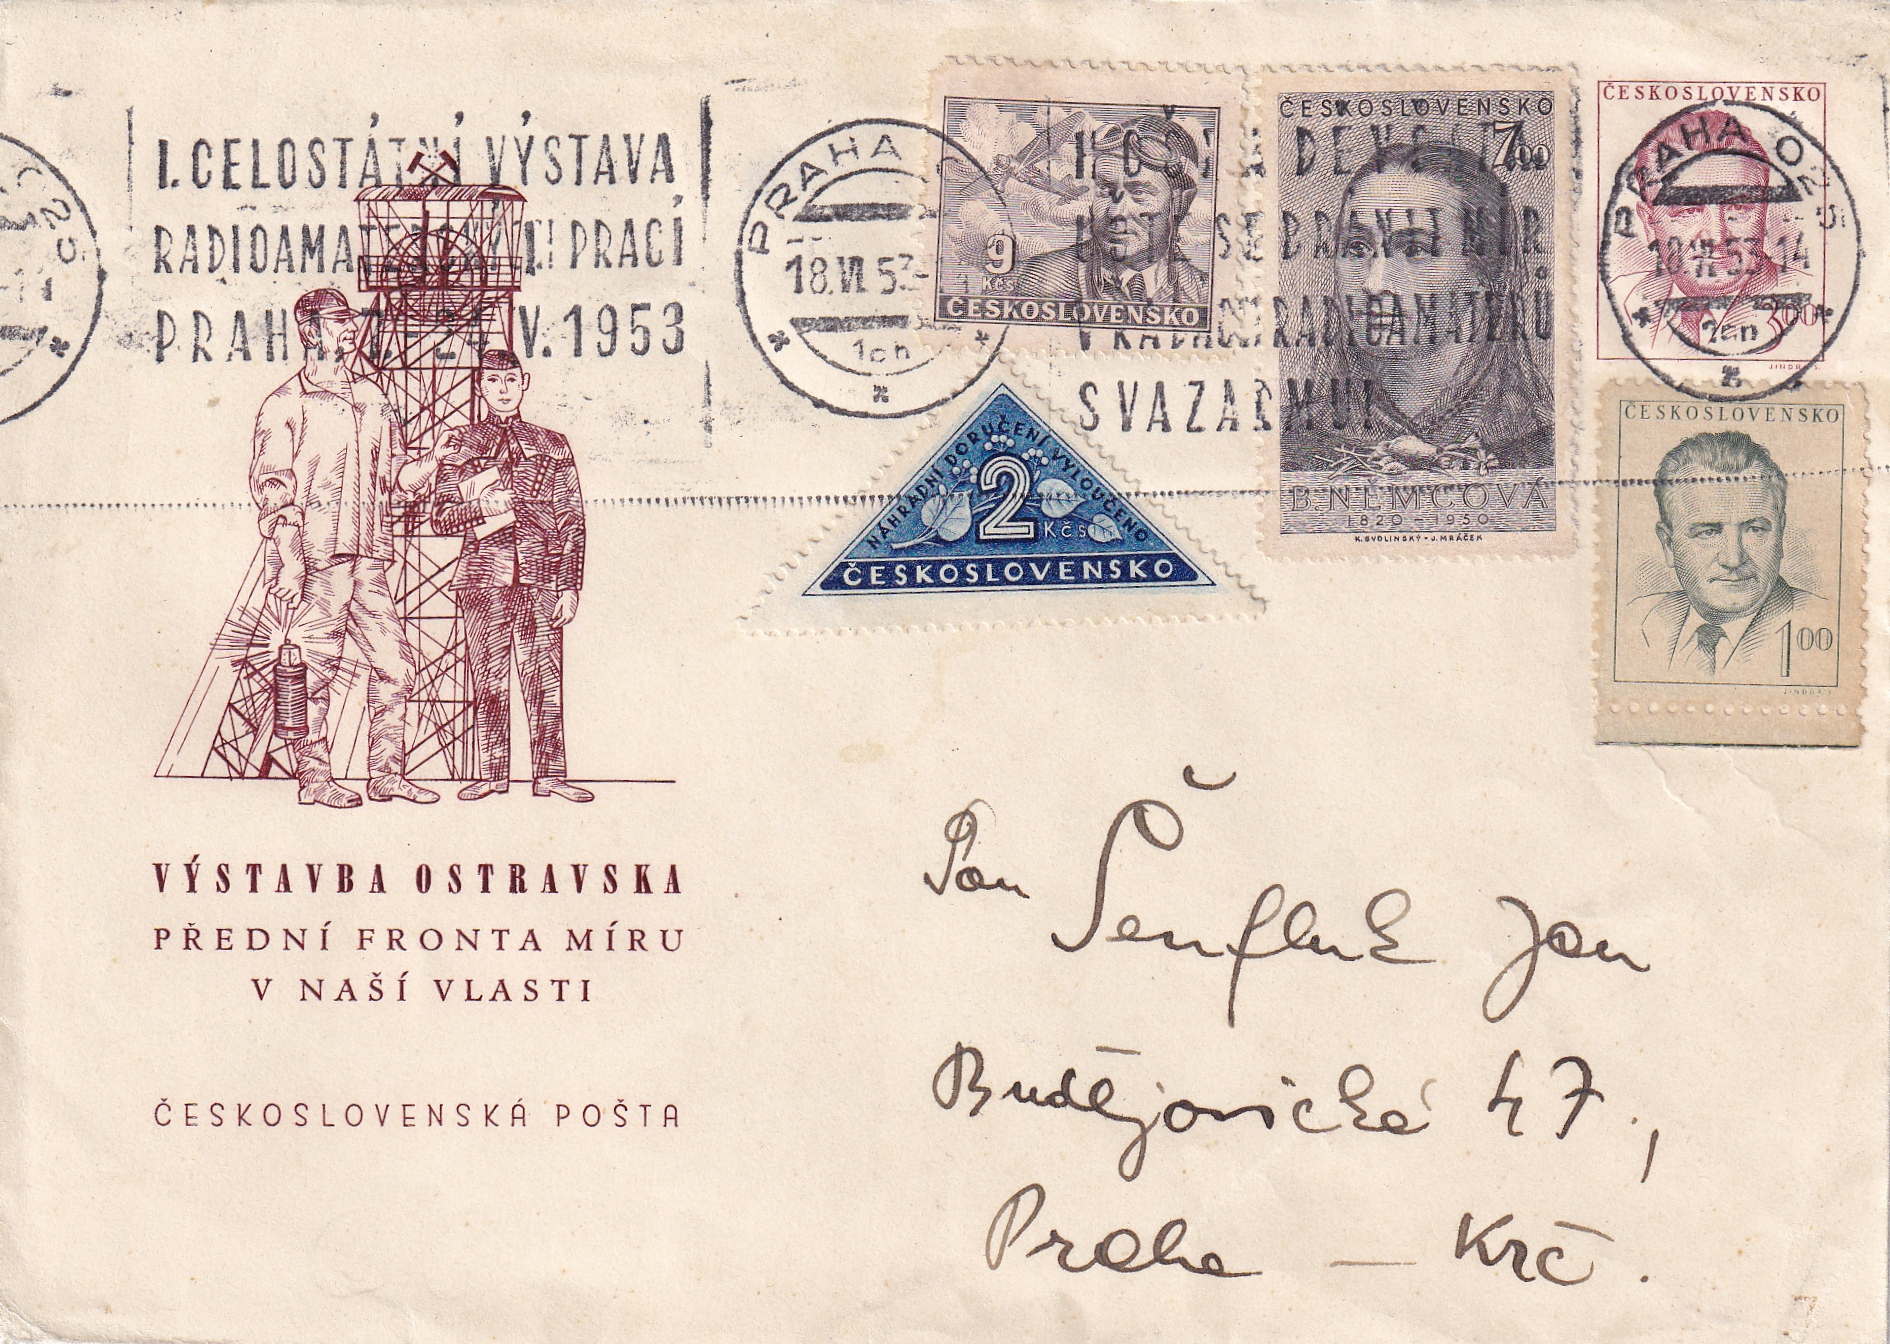 I. CELOSTÁTNÍ VÝSTAVA
RADIOAMATÉRSKÝCH PRACÍ
PRAHA, 7.-24. V. 1953
PRAHA
18.VI.53-
HOŠI A DĚVČATA
UČTE SE BRÁNIT MÍR
V ŘADÁCH RADIOAMATÉRŮ
SVAZARMU!
9
Kčs
ČESKOSLOVENSKO
ČESKOSLOVENSKO
7.00
B. NĚMCOVÁ
1820 - 1950
K. SVOLINSKÝ - J. MRÁČEK
ČESKOSLOVENSKO
3.00
JINDRA S.
PRAHA 025
18.VI.53-14
NÁHRADNÍ DORUČENÍ VYLOUČENO
2 KČS
ČESKOSLOVENSKO
ČESKOSLOVENSKO
1.00
JINDRA S.
VÝSTAVBA OSTRAVSKA
PŘEDNÍ FRONTA MÍRU
V NAŠÍ VLASTI
ČESKOSLOVENSKÁ POŠTA
Pan
Jan
Budějovická 47,
Praha — Krč.